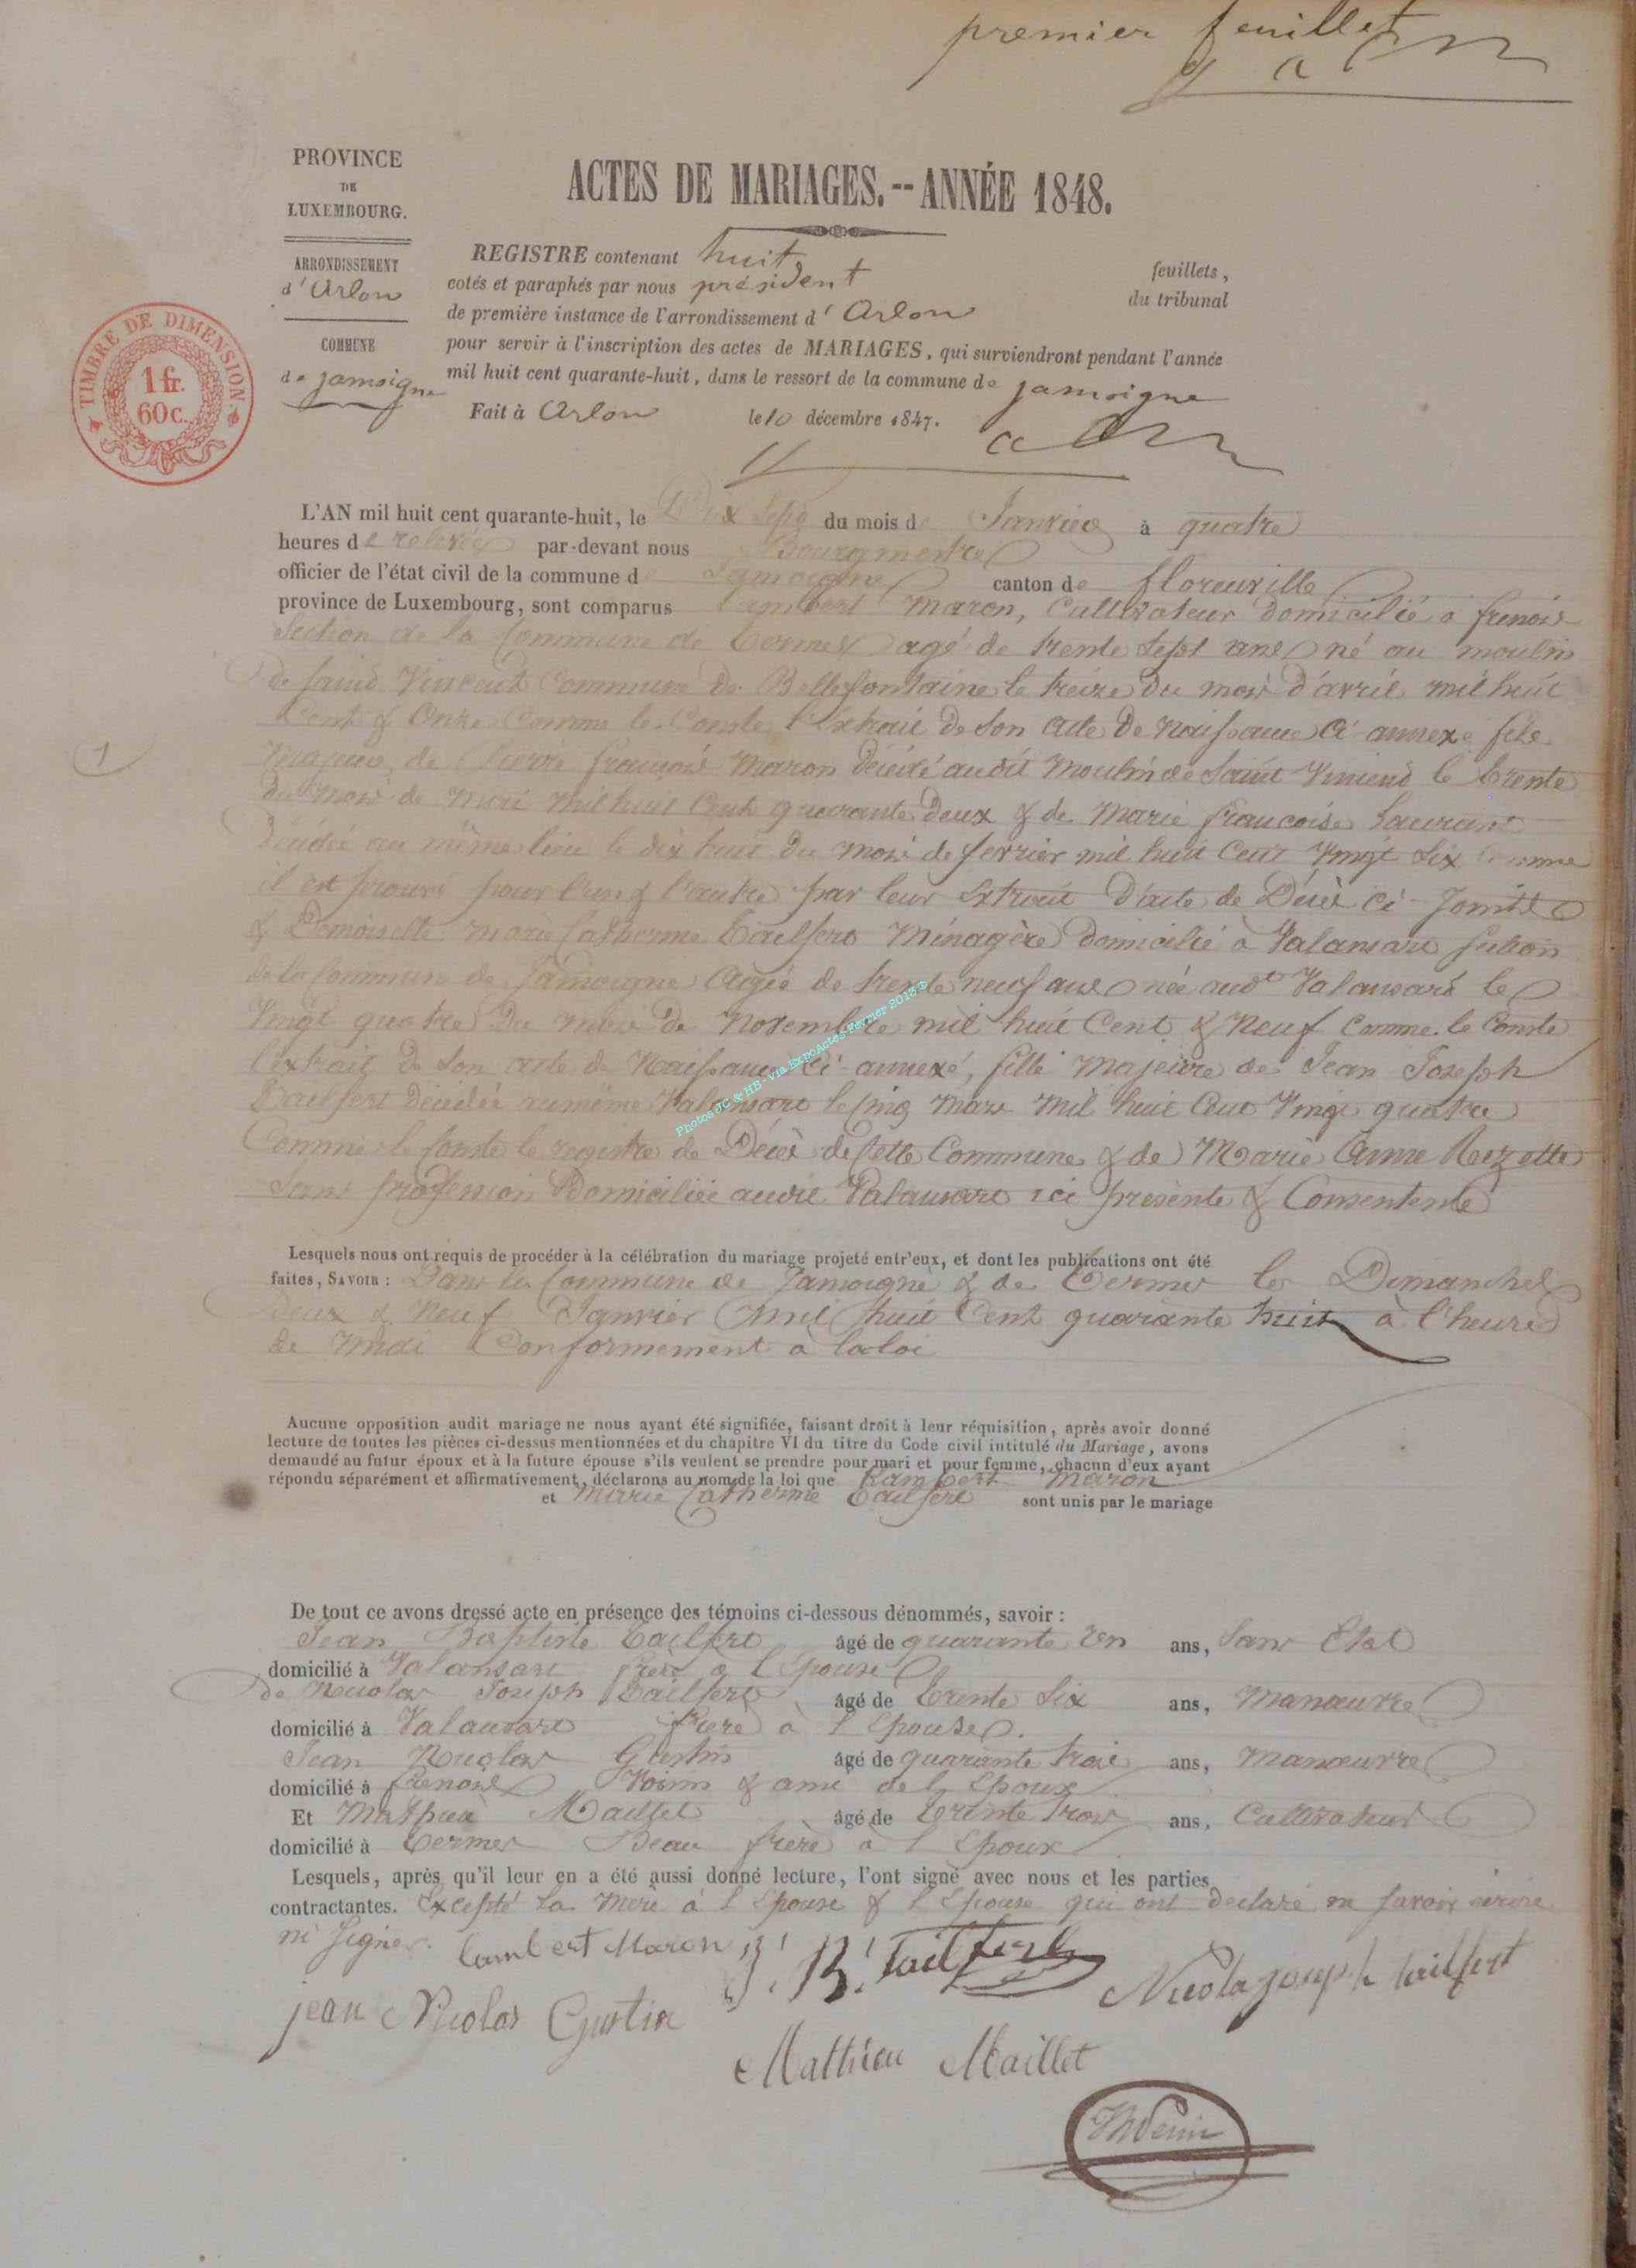 premier feuillet
PROVINCE
DE
LUXEMBOURG.
ARRONDISSEMENT
d'Arlon
COMMUNE
de jamoigne
TIMBRE DE DIMENSION.
1 fr.
60 c.
ACTES DE MARIAGES.--ANNÉE 1848.
REGISTRE contenant huit feuillets,
cotés et paraphés par nous président du tribunal
de première instance de l'arrondissement d'Arlon
pour servir à l'inscription des actes de MARIAGES, qui surviendront pendant l'année
mil huit cent quarante-huit, dans le ressort de la commune de jamoigne
Fait à Arlon le 10 décembre 1847.
L'AN mil huit cent quarante-huit, le Dix Sept du mois de Janvier à quatre
heures de relevée par-devant nous Bourgmestre
officier de l'état civil de la commune de Jamoigne canton de florenville
province de Luxembourg, sont comparus Lambert Maron, Cultivateur domicilié à frenois
Section de la Commune de Termes agé de trente sept ans né au moulin
de Saint Vincent Commune de Bellefontaine le treize du mois d'avril mil huit
Cent & Onze Comme le Conste l'Extrait de son acte de Naissance ci-annexé fils
1
Majeur de Pierre françois Maron Décédé audit Moulin de Saint Vincent le trente
du mois de mil huit Cent quarante Deux & de Marie françoise Laurant
Décédée au même lieu le dix huit du mois de fevrier mil huit Cent Vingt Six Comme
il est prouvé pour l'un & l'autre par leur Extrait D'acte de Décès Ci-Joints
& Demoiselle Marie Catherine Tailfert Ménagère domicilié à Valansart Section
de la Commune de Jamoigne Agée de trente neuf ans née audt Valansart le
Vingt quatre Du mois De Novembre mil huit Cent & Neuf Comme le Conste
l'extrait de Son acte de Naissance Ci-annexé, fille Majeure de Jean Joseph
Tailfert Décédée au même Valansart le Cinq Mars Mil huit Cent Vingt quatre
Comme le Conste le registre de Décès de Cette Commune & de Marie Anne Rezette
Sans profession Domiciliée audit Valansart ici présente & Consentente
Lesquels nous ont requis de procéder à la célébration du mariage projeté entr'eux, et dont les publications ont été
faites, SAVOIR : Dans la Commune de Jamoigne & de Termes les Dimanches
deux & Neuf Janvier mil huit Cent quarante huit à l'heure
de midi Conformement à la loi
Aucune opposition audit mariage ne nous ayant été signifiée, faisant droit à leur réquisition, après avoir donné
lecture de toutes les pièces ci-dessus mentionnées et du chapitre VI du titre du Code civil intitulé du Mariage, avons
demandé au futur époux et à la future épouse s'ils veulent se prendre pour mari et pour femme, chacun d'eux ayant
répondu séparément et affirmativement, déclarons au nom de la loi que Lambert Maron
et Marie Catherine Tailfert sont unis par le mariage
De tout ce avons dressé acte en présence des témoins ci-dessous dénommés, savoir :
Jean Baptiste Tailfert âgé de quarante ans, Sans Etat
domicilié à Valansart frère à l'Epouse
de Nicolas Joseph Tailfert âgé de trente Six ans, Manœuvre
domicilié à Valansart frere à l'Epouse.
Jean Nicolas Gustin âgé de quarante trois ans, Manœuvre
domicilié à frenois Voisin & ami de l'Epoux
Et Mathieu Maillet âgé de trente trois ans, Cultivateur
domicilié à Termes Beau frère à l'Epoux
Lesquels, après qu'il leur en a été aussi donné lecture, l'ont signé avec nous et les parties
contractantes. Excepté la Mere à l'Epouse & l'Epouse qui ont declaré ne Savoir écrire
ni Signer. Lambert Maron J. B. Tailfert
jean Nicolas Gustin Nicola joseph tailfert
Mathieu Maillet
Photos JC & HB - via ExpoActes Février 2013 ©